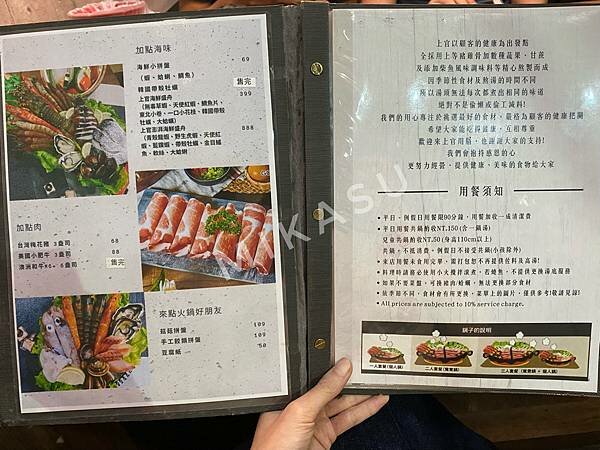 加點海味
海鮮小拼盤 69
(蝦、蛤蜊、鯛魚)
韓國帶殼牡蠣 售完
上官海鮮盛舟 399
(無毒草蝦、天使紅蝦、鯛魚片、
東北小卷、一口小花枝、韓國帶殼
牡蠣、大蛤蠣)
上官澎湃海鮮盛舟 888
加點肉
台灣梅花豬 3盎司 68
美國小肥牛 3盎司 88
澳洲和牛M6+ 6盎司 售完
來點火鍋好朋友
菇菇拼盤 109
手工餃類拼盤 109
豆腐紙 50
上官以顧客的健康為出發點
全採用上等豬雞骨加數種蔬果、甘蔗
及添加柴魚風味調味料等精心熬製而成
因季節性食材及熬湯的時間不同
所以湯頭無法每次都煮出相同的味道
絕對不是偷懶或偷工減料!
我們的用心專注於挑選最好的食材,嚴格為顧客的健康把關
希望大家能吃得健康,互相尊重
歡迎來上官用膳,也謝謝大家的支持!
我們會抱持感恩的心
更努力經營,提供健康、美味的食物給大家
用餐須知
• 平日、例假日用餐限90分鐘,用餐加收一成清潔費
• 平日用餐共鍋酌收NT.150(含一鍋湯)
兒童共鍋酌收NT.50(身高110cm以上)
共鍋,不抵消費,例假日不接受共鍋(小孩除外)
• 來店用餐未食用完畢,需打包恕不再提供飲料及高湯!
• 料理時請務必使用小火攪拌滾煮,若燒焦,不提供更換湯底服務
• 如果不要菜盤,可換豬肉/蛤蠣,無法更換部分食材
• 依季節不同,食材會有所更換,菜單上的圖片,僅供參考!敬請見諒!
• All prices are subjected to 10% service charge.
鍋子的說明
一人套餐(個人鍋)
二人套餐(鴛鴦鍋)
三人套餐(鴛鴦鍋 + 個人鍋)
MIKASU